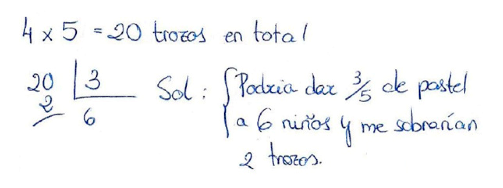 4 x 5 = 20 trozos en total
20 | 3 Sol: { Podria dar 3/5 de pastel
2 6 a 6 niños y me sobrarían
2 trozos.